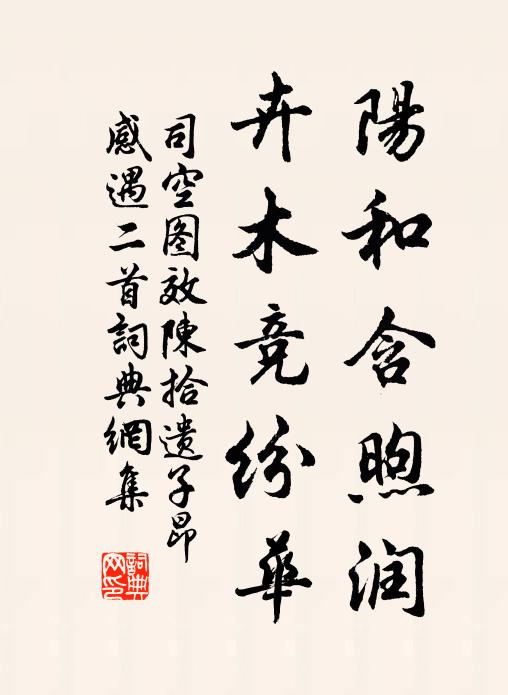 陽和含煦润
卉木竞纷華
司空图效陳拾遗子昂
感遇二首詞典網集
詞典
网印